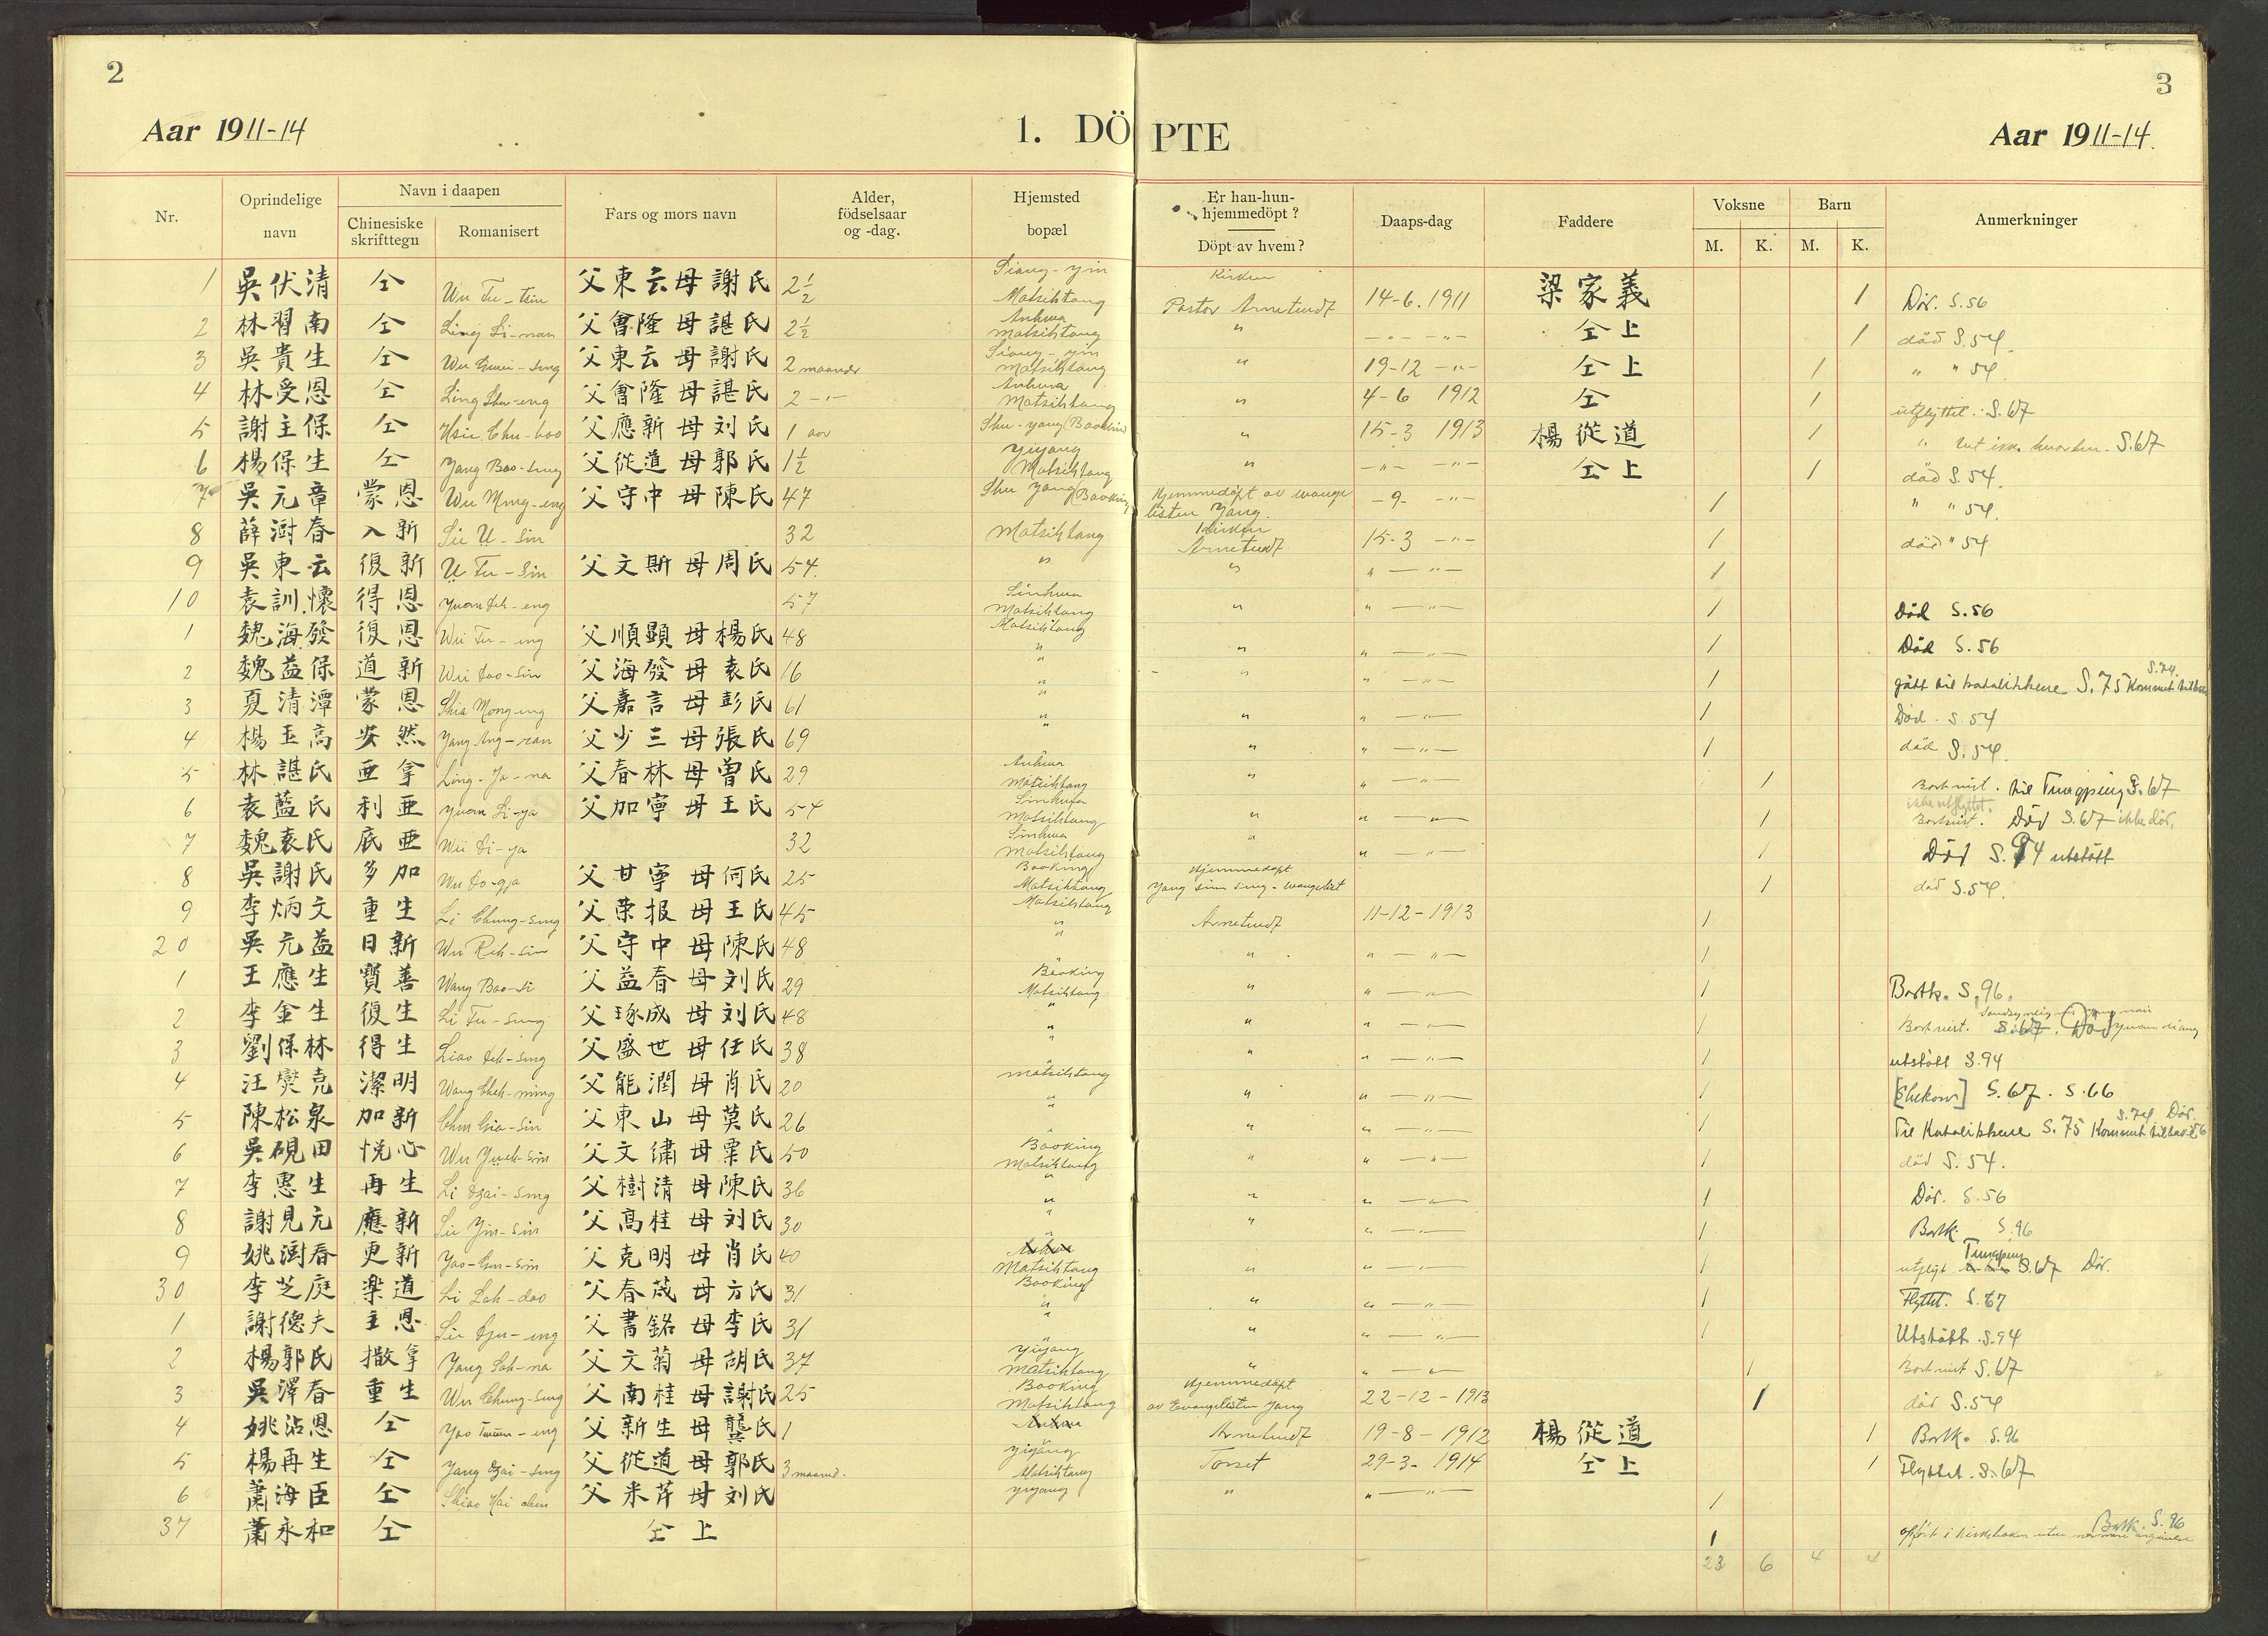 2
3
Aar 1911-14
1. DÖPTE
Aar 1911-14.
Nr.
Oprindelige navn
Navn i daapen
Chinesiske skrifttegn
Romanisert
Fars og mors navn
Alder, födselsaar og -dag.
Hjemsted
bopæl
Er han-hun-hjemmedöpt ?
Döpt av hvem?
Daaps-dag
Faddere
Voksne
M.
K.
Barn
M.
K.
Anmerkninger
1 吳伏清 仝 Wu Fu-tsin 父東云母謝氏 2½ Siang-yin Matsihtang Kirken Pastor Arnetvedt 14-6. 1911 梁家義 1 Död. S. 56
2 林習南 仝 Ling Si-nan 父會隆母諶氏 2½ Anhwa Matsihtang " -"- -"- 仝上 1 död S. 54.
3 吳貴生 仝 Wu Gwei-sung 父東云母謝氏 2 maaneder Siang-yin Matsihtang " 19-12 -"- 仝上 1 " " 54.
4 林受恩 仝 Ling Shu-eng 父會隆母諶氏 2 -"- Anhwa Matsihtang " 4-6 1912 仝 1 utflyttet. S. 67
5 謝主保 仝 Hsie Chu-bao 父應新母刘氏 1 aar Shu-yang (Baoking " 15-3 1913 楊從道 1 " vet ikke hvorhen. S. 67
6 楊保生 仝 Yang Bao-sung 父從道母郭氏 1½ Yiyang Matsihtang " -"- -"- 仝上 1 död S. 54.
7 吳元章 蒙恩 Wu Mung-eng 父守中母陳氏 47 Shu yang (Baoking Hjemmedöpt av evangelisten Yang. -9- -"- 1 " " 54.
8 薛澍春 入新 Sü U-sin 32 Matsihtang Kirken Arnetvedt 15-3 -"- 1 död " 54
9 吳東云 復新 U Fu-sin 父文斯母周氏 54. " " " -"- 1
10 袁訓懷 得恩 Yuan Deh-eng 57 Sinhwa Matsihtang " " -"- 1 Död S. 56
1 魏海發 復恩 Wei Fu-eng 父順顯母楊氏 48 Matsihtang " " -"- 1 Död S. 56
2 魏益保 道新 Wei Dao-sin 父海發母袁氏 16 " " " -"- 1 gått til katolikkene S. 75 Kommet tilbake S. 74.
3 夏清潭 蒙恩 Shia Mong-eng 父嘉言母彭氏 61 " " " -"- 1 Död. S. 54
4 楊玉高 安然 Yang Ang-ran 父少三母張氏 69 " " " -"- 1 död S. 54.
5 林諶氏 亜拿 Ling-Ya-na 父春林母曾氏 29 Anhwa Matsihtang " " -"- 1 Bortreist. til Tungping S. 67
6 袁藍氏 利亜 Yuan Li-ya 父加寧母王氏 54 Sinhwa Matsihtang " " -"- 1 ikke utflyttet. Bortreist. Död S. 67 ikke död.
7 魏袁氏 底亜 Wei Di-ya 32 Sinhwa Matsihtang " " -"- 1 Död S. 94 utstött
8 吳謝氏 多加 Wu Do-gja 父甘寧母何氏 25 Baoking Matsihtang Hjemmedöpt Yang sin sung-evangelist 1 död S. 54.
9 李炳文 重生 Li Chung-sung 父荣报母王氏 45 Matsihtang Arnetvedt 11-12-1913 1
20 吳元益 日新 Wu Reh-sin 父守中母陳氏 48 " " " -"- 1
1 王應生 寶善 Wang Bao-si 父益春母刘氏 29 Baoking Matsihtang " " -"- 1 Bortk. S. 96.
2 李金生 復生 Li Fu-sung 父琢成母刘氏 48 " " " -"- 1 Bortreist. S. 67. Död
3 劉保林 得生 Liao Deh-sung 父盛世母任氏 38 " " " -"- 1 utstött S. 94
4 汪爕克 潔明 Wang Cheh-ming 父能潤母肖氏 20 Matsihtang " " -"- 1 [Chekow] S. 67. S. 66
5 陳松泉 加新 Chen Gia-sin 父東山母莫氏 26 " " " -"- 1 Til Katolikkene S. 75 Kommet tilbake S. 74. Död. 56
6 吳硯田 悅心 Wu Yueh-sin 父文繡母粟氏 50 Baoking Matsihtang " " -"- 1 död S. 54.
7 李惠生 再生 Li Dzai-sung 父樹清母陳氏 36 " " " -"- 1 Död. S. 56
8 謝見元 應新 Sie Yin-sin 父高桂母刘氏 30 " " " -"- 1 Bortk. S. 96
9 姚澍春 更新 Yao-Gen-sin 父克明母肖氏 40 Anhwa Matsihtang " " -"- 1 utflyt. Tungping S. 67 Död.
30 李芝庭 楽道 Li Loh-dao 父春茂母方氏 31 Baoking " " " -"- 1 Flyttet. S. 67
1 謝德夫 主恩 Sie Dju-eng 父書銘母李氏 31 " " " -"- 1 Utstött. S. 94
2 楊郭氏 撒拿 Yang Sah-na 父文菊母胡氏 37 Yiyang Matsihtang " " -"- 1 Bortreist S. 67
3 吳澤春 重生 Wu Chung-sung 父南桂母謝氏 25 Baoking Matsihtang Hjemmedöpt av Evangelisten Yang 22-12-1913 1 död S. 54
4 姚沾恩 仝 Yao -eng 父新生母龔氏 1 Anhwa Arnetvedt 19-8-1912 楊從道 1 Bortk. S. 96
5 楊再生 仝 Yang Dzai-sung 父從道母郭氏 3 maaned. Yiyang Matsihtang Torset 29-3-1914 仝上 1 Flyttet. S. 67
6 蕭海臣 仝 Shiao Hai chen 父米芹母刘氏 Yiyang " " -"- 1
37 蕭永和 仝 仝上 1 Bortk. S. 96 opfört i kirkeboken uten nærmere angivelse
23 6 4 4